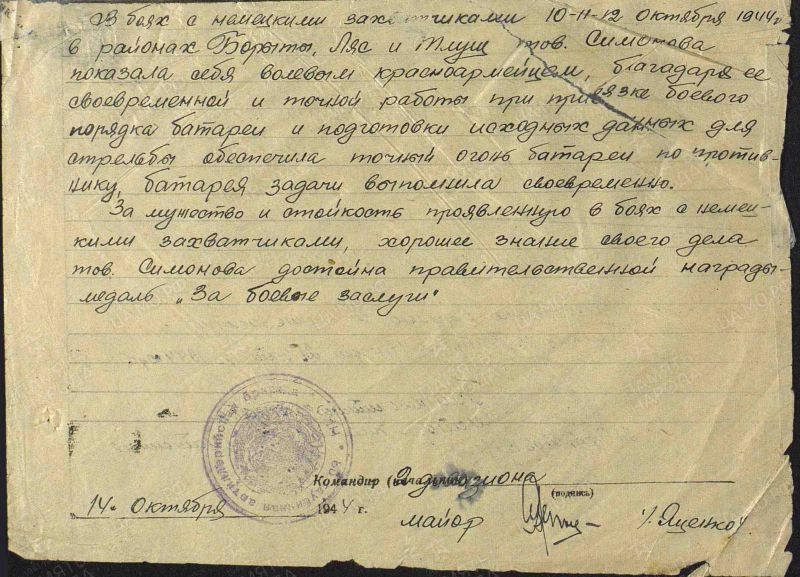 В боях с немецкими захватчиками 10-11-12 октября 1944г
в районах Борыты, Ляс и Тлущ тов. Симонова
показала себя волевым красноармейцем, благодаря ее
своевременной и точной работы при привязке боевого
порядка батареи и подготовки исходных данных для
стрельбы обеспечила точный огонь батареи по против-
нику, батарея задачи выполнила своевременно.
За мужество и стойкость проявленную в боях с немец-
кими захватчиками, хорошее знание своего дела
тов. Симонова достойна правительственной награды-
медаль „За боевые заслуги"
Командир 2 дивизиона
(подпись)
14. Октября 1944 г.
майор /Ященко/